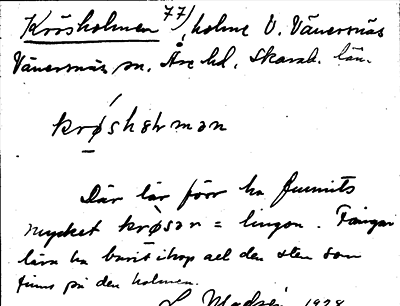 Krösholmen 77), holme V. Vänersnäs
Vänersnäs sn. Åse hd. Skarab. län.
krøsholman
Där lär förr ha funnits
mycket krøsən = lingon. Fångar
lära ha burit ihop all den sten som
finns på den holmen.
1928